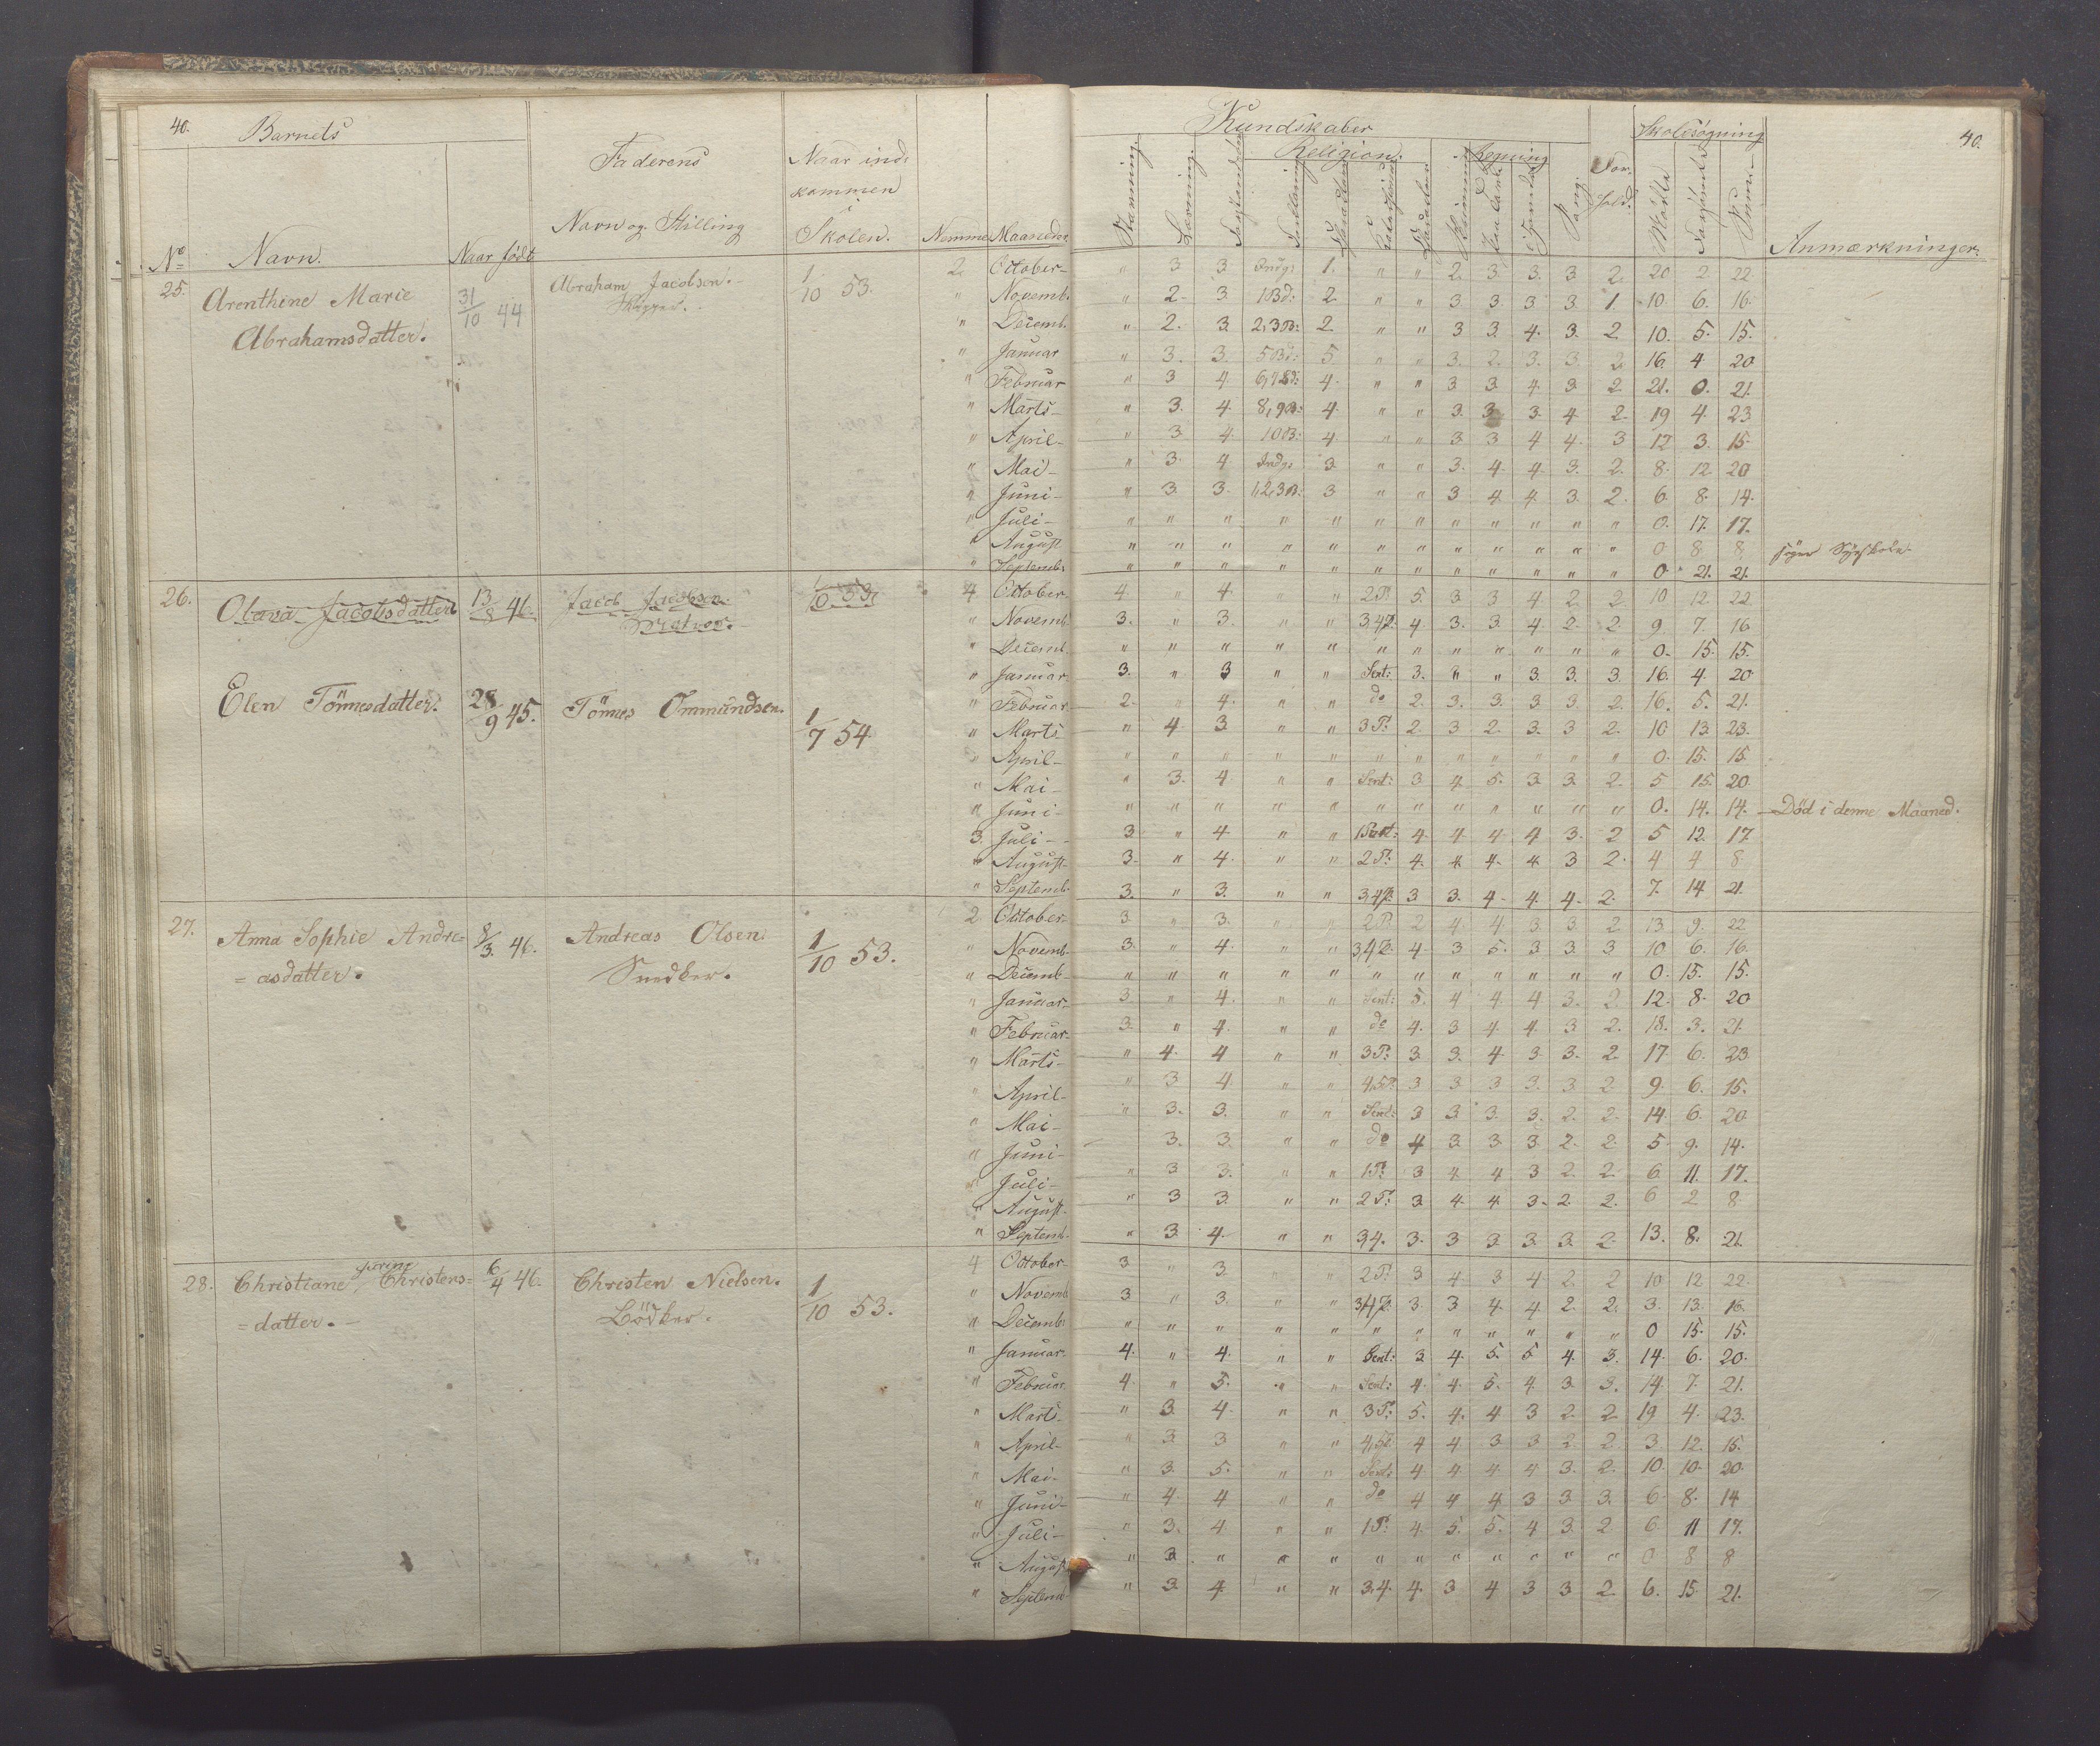 40.
Barnets
Faderens
Naar ind-
kommen
i
Skolen.
Navn og Stilling
No
Navn.
Naar født
Nemme
Maaneder
Kundskaber
Skolesøgning
40.
Religion.
Regning
Stavning.
Læsning.
Sang.
For-
hold.
Mødte
Forsømte
Sum.
Anmærkninger.
25. Arenthine Marie 31/10 44 Abraham Jacobsen. 1/10 53. 2. October " 3 3 Indg: 1. " " 2 3 3. 3 2. 20 2. 22
Abrahamsdatter. Skipper. " Novemb. " 2. 3. 1 Bd: 2. " " 3 3 3 3. 1. 10. 6. 16.
" Decemb. " 2. 3. 2,3 B: 2. " " 3 3. 4. 3. 2 10. 5. 15.
" Januar " 3. 3. 5 Bd: 5 " " 3. 2. 3. 3 2 16. 4 20
" Februar " 3 4. 6,7 Bd: 4. " " 3 3 4. 3 2. 21. 0. 21.
" Marts " 3. 4. 8,9 B: 4. " " 3. 3 3. 4. 2. 19 4. 23
" April " 3 4. 10 B: 4. " " 3 3 4 4. 3 12 3. 15
" Mai " 3. 4. Indg: 3. " " 3. 4. 4. 3. 2. 8. 12 20
" Juni " 3. 3. 1,2,3 B: 3 " " 3 4. 4. 3 2. 6. 8. 14.
" Juli " " " " " " " " " " " " 0. 17. 17.
" August " " " " " " " " " " " " 0 8 8 søger Syeskole
" Septemb. " " " " " " " " " " " " 0 21. 21.
26. Olava Jacobsdatter 13/8 46. Jacob Jacobsen. 1/10 53 4 October 4. " 4. " " 2 P. 5. 3 3 4 2. 2 10 12. 22
" Novemb. 3. " 3. " " 3,4 P. 4 3. 3. 4. 2. 2. 9. 7. 16
" Decemb. " " " " " " " " " " " " 0. 15. 15.
" Januar 3. " 3 " " Sent: 3. " " 3. 3. 3. 16. 4. 20
Elen Tönnesdatter. 28/9 45. Tönnes Ommundsen. 1/7 54. " Februar 2. " 4. " " do 2. 3. 3. 3. 3. 2. 16. 5. 21.
" Marts " 4. 3. " " 3 P: 2. 3 2. 3. 3 2. 10 13. 23.
" April " " " " " " " " " " " " 0. 15. 15.
" Mai " 3. 4 " " Sent: 3 4. 5. 3. 3. 2. 5 15. 20
" Juni " " " " " " " " " " " " 0. 14. 14. Död i denne Maaned.
3. Juli 3 " 4 " " 1 Part: 4. 4 4. 4 3. 2 5 12. 17
" August 3. " 4. " " 2 P. 4. 4. 4. 4. 3 2. 4 4 8
" Septemb. 3. " 3. " " 3,4 P. 3 3. 4. 4. 4. 2. 7. 14 21.
27. Anna Sophie Andre= 8/3. 46. Andreas Olsen. 1/10 53. 2 October 3 " 3. " " 2 P. 2 4. 4. 3 3. 2 13. 9. 22
= asdatter. Snedker. " Novemb. 3. " 4. " " 3,4 P. 4. 3 5. 3 3. 3 10 6. 16.
" Decemb. " " " " " " " " " " " " 0. 15. 15.
" Januar 3. " 4. " " Sent: 5. 4 4. 4 3. 2. 12. 8. 20
" Februar 3. " 4. " " do 4. 3 4. 4. 3 2. 18. 3. 21.
" Marts " 4. 4 " " 3 P: 3 3. 4. 3 3. 2. 17. 6. 23
" April " 3 4. " " 4,5 P. 3 3 3 3. 3 2. 9. 6. 15.
" Mai " 3. 3. " " Sent: 3 3 3. 3. 2. 2. 14. 6. 20
" Juni 3. 3. " " do 4 3. 3 3. 2. 2. 5. 9. 14.
" Juli " 3 3. " " 1 P: 3 4. 4 3 2. 2. 6. 11. 17.
" August " 3 3. " " 2 P. 3 4. 4. 3. 2. 2. 6 2 8
" Septemb. " 3. 4. " " 3,4. 3. 3 3. 3. 3. 2. 13. 8. 21.
28. Christiane Christens= 6/4 46. Christen Nielsen. 1/10 53. 4 October 3 " 3 " " 2 P. 3 4. 3 4 2. 2 10. 12 22.
= datter. Bödker. " Novemb 3 " 3. " " 3,4 P. 3. 3 4. 4 2. 2. 3. 13. 16.
" Decemb: " " " " " " " " " " " " 0 15. 15.
" Januar. 4. " 4. " " Sent: 3 4. 5. 5 4. 3. 14. 6. 20.
" Februar 4. " 5. " " Sent: 4. 4. 5. 4. 3 3. 14 7. 21.
" Marts " 3. 4. " " 3 P: 5. 4. 4 3 2. 2. 19 4. 23.
" April " 3 3 " " 4,5 P. 4 4 3 3 2. 2. 3. 12. 15.
" Mai " 3. 5. " " Sent: 4 4. 4. 4 3. 2. 10. 10. 20.
" Juni " 4. 4 " " do 4 4 4. 3 3. 3. 6. 8. 14
" Juli " 3. 4. " " 1 P: 4. 5. 5. 4 3. 2. 6. 11 17.
" August " 3 " " " " " " " " " " 0 8 8
" Septemb " 3. 4. " " 3,4. 4. 3 4 3 3 2. 6. 15. 21.